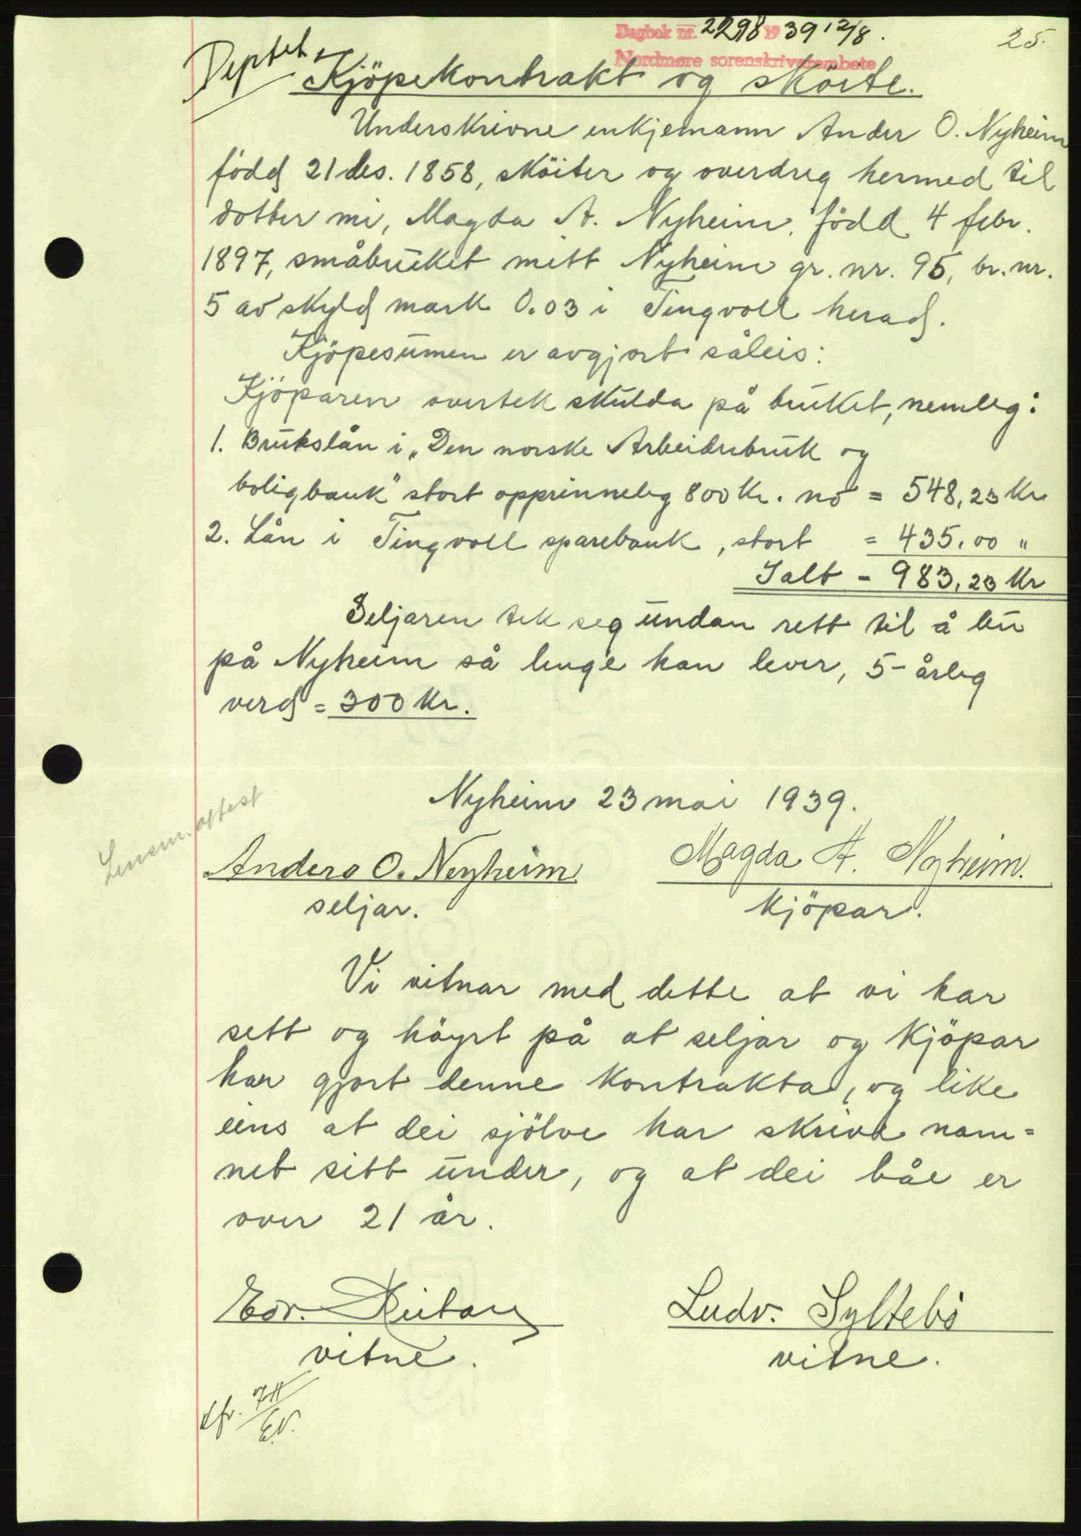 Dagbok nr. 2298 1939 12/8.
Nordmøre sorenskriverembete
25.
Kjöpekontrakt og sköite.
Underskrivne enkjemann Anders O. Nyheim
född 21 des. 1858, sköiter og overdreg hermed til
dotter mi, Magda A. Nyheim, född 4 febr.
1897, småbruket mitt Nyheim gr. nr. 95, br. nr.
5 av skyld mark 0.03 i Tingvoll herad.
Kjöpesummen er avgjort såleis:
Kjöparen overtek skulda på bruket, nemleg:
1. Brukslån i „Den norske Arbeidarbruk og
boligbank" stort opprinneleg 800 kr. no = 548,23 kr
2. Lån i Tingvoll sparebank, stort = 435.00 "
Ialt = 983,23 kr
Seljaren tek seg undan rett til å bu
på Nyheim så lenge han lever, 5-årleg
verd = 300 kr.
Nyheim 23 mai 1939.
Lensm. attest
Anders O. Neyheim
Magda A. Nyheim.
seljar.
kjöpar.
Vi vitnar med dette at vi har
sett og höyrt på at seljar og kjöpar
har gjort denne kontrakta, og like
eins at dei sjölve har skrive nam=
net sitt under, og at dei båe er
over 21 år.
Edv.
Ludv. Syltebö
vitne.
vitne.